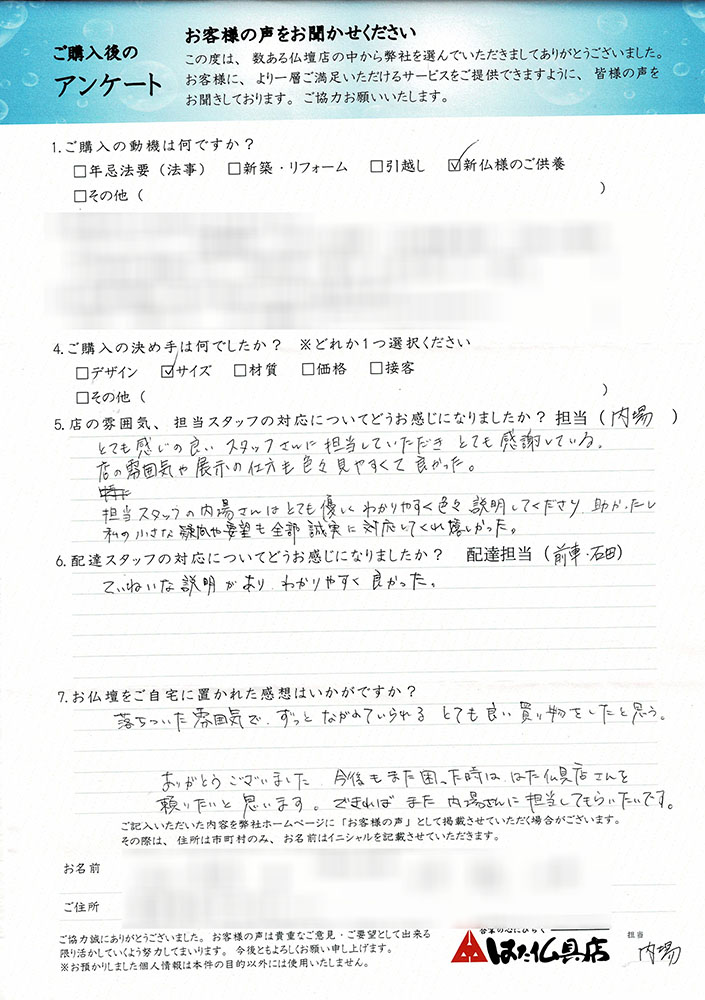 ご購入後の
アンケート
お客様の声をお聞かせください
この度は、数ある仏壇店の中から弊社を選んでいただきましてありがとうございました。
お客様に、より一層ご満足いただけるサービスをご提供できますように、皆様の声を
お聞きしております。ご協力お願いいたします。
1.ご購入の動機は何ですか？
□年忌法要（法事） □新築・リフォーム □引越し ☑新仏様のご供養
□その他（ ）
4.ご購入の決め手は何でしたか？ ※どれか1つ選択ください
□デザイン ☑サイズ □材質 □価格 □接客
□その他（ ）
5.店の雰囲気、担当スタッフの対応についてどうお感じになりましたか？担当（内場 ）
とても感じの良いスタッフさんに担当していただき とても感謝している。
店の雰囲気や展示の仕方も色々見やすくて良かった。
担当スタッフの内場さんはとても優しくわかりやすく色々説明してくださり 助かったし
私の小さな疑問や要望も全部誠実に対応してくれ嬉しかった。
6.配達スタッフの対応についてどうお感じになりましたか？ 配達担当（前車・石田）
ていねいな説明があり、わかりやすく良かった。
7.お仏壇をご自宅に置かれた感想はいかがですか？
落ちついた雰囲気で、ずっとながめていられる とても良い買い物をしたと思う。
ありがとうございました 今後もまた困った時は、はた仏具店さんを
頼りたいと思います。できればまた内場さんに担当してもらいたいです。
ご記入いただいた内容を弊社ホームページに「お客様の声」として掲載させていただく場合がございます。
その際は、住所は市町村のみ、お名前はイニシャルを記載させていただきます。
お名前
ご住所
ご協力誠にありがとうございました。お客様の声は貴重なご意見・ご要望として出来る
限り活かしていくよう努力してまいります。今後ともよろしくお願い申し上げます。
※お預かりしました個人情報は本件の目的以外には使用いたしません。
合掌の心にひらく
はた仏具店
担当
内場